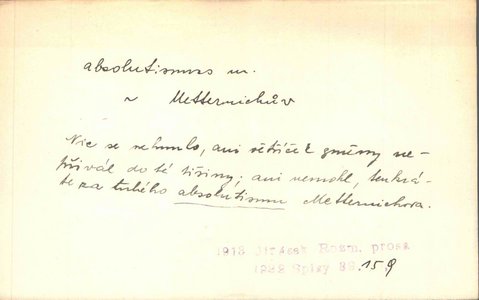 absolutismus m.
~ Metternichův
Nic se nehnulo, ani větříček změny ne-
přivál do té tišiny; ani nemohl, tenkrá-
te za tuhého absolutismu Metternichova.
1918 Jirásek Rozm. prosa
Spisy 39.159